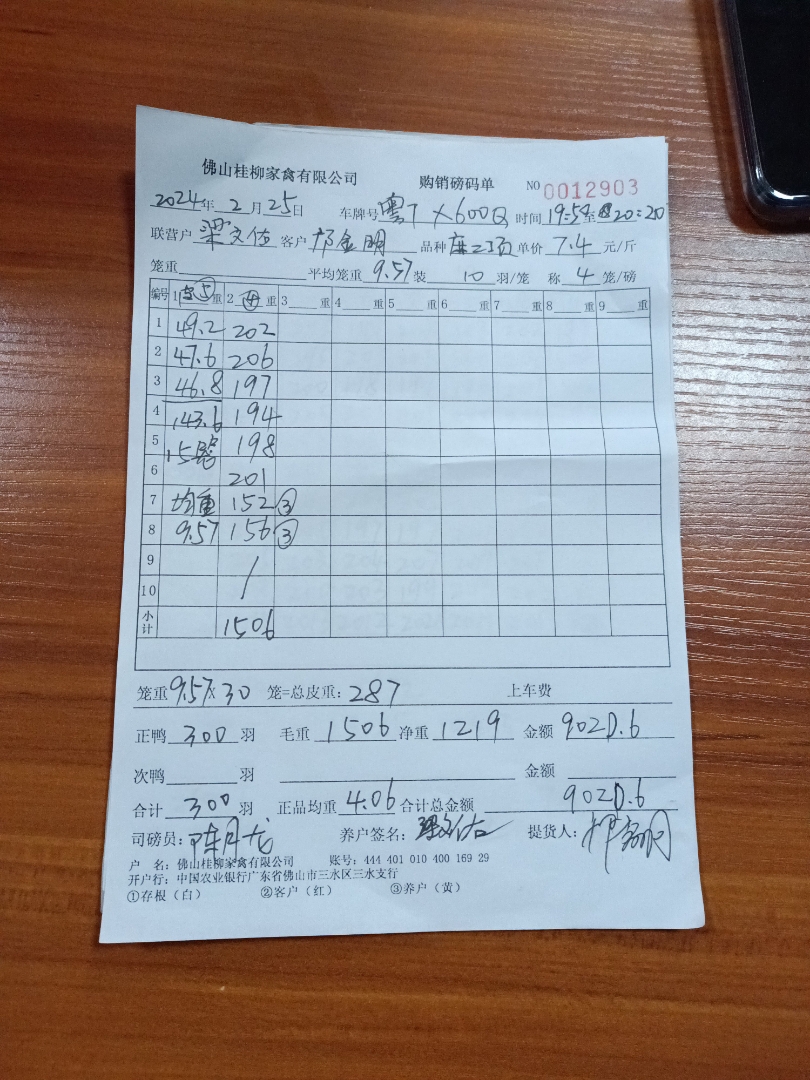 佛山桂柳家禽有限公司 购销磅码单 NO 0012903
2024年2月25日 车牌号 粤T X600Q 时间 19:54至20:20
联营户 梁文佑 客户 邝金明 品种 单价 7.4 元/斤
笼重 平均笼重 9.57 装 10 羽/笼 称 4 笼/磅
编号 1 ⑤ 重 2 ④ 重 3 重 4 重 5 重 6 重 7 重 8 重 9 重
1 49.2 202
2 47.6 206
3 46.8 197
4 143.6 194
5 15 198
6 201
7 均重 152 ③
8 9.57 156 ③
9 /
10
小计 1506
笼重 9.57 x 30 笼=总皮重: 287 上车费
正鸭 300 羽 毛重 1506 净重 1219 金额 9020.6
次鸭 羽 金额
合计 300 羽 正品均重 4.06 合计总金额 9020.6
司磅员: 陈月龙 养户签名: 梁文佑 提货人:
户 名: 佛山桂柳家禽有限公司 账号: 444 401 010 400 169 29
开户行: 中国农业银行广东省佛山市三水区三水支行
①存根（白） ②客户（红） ③养户（黄）